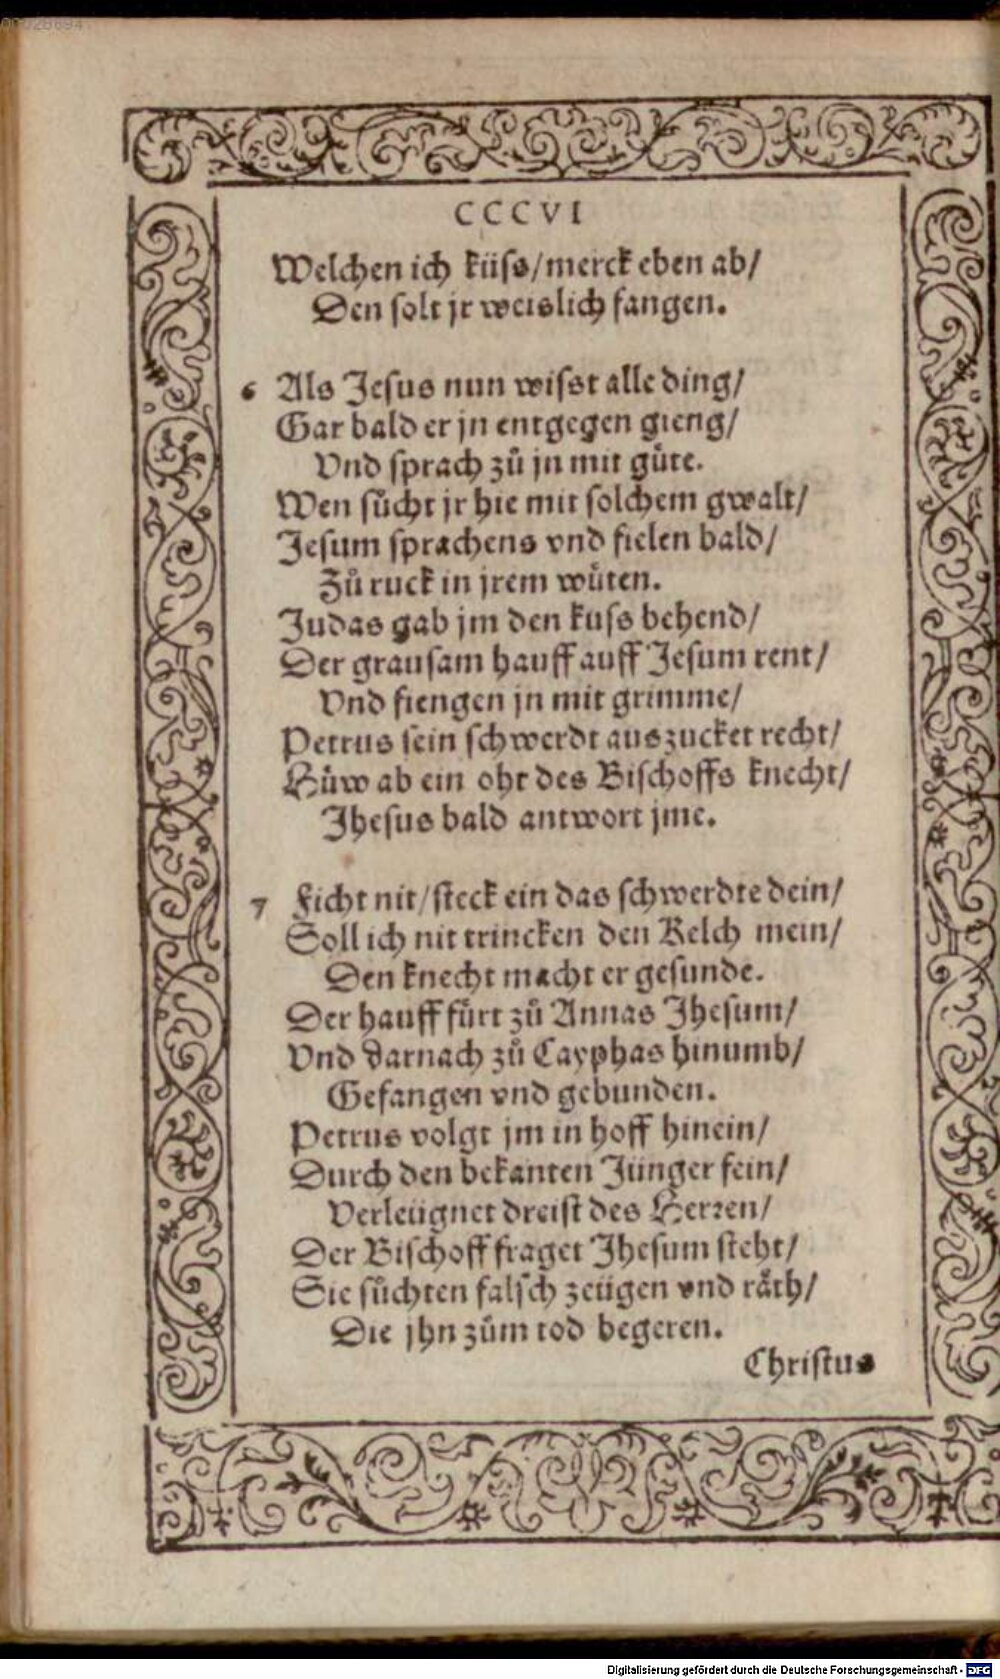 CCCVI
Welchen ich küss/merck eben ab/
Den solt jr weislich fangen.
6 Als Jesus nun wisst alle ding/
Gar bald er jn entgegen gieng/
Vnd sprach zů jn mit gůte.
Wen sůcht jr hie mit solchem gwalt/
Jesum sprachens vnd fielen bald/
Zů ruck in jrem wůten.
Judas gab jm den kuss behend/
Der grausam hauff auff Jesum rent/
Vnd fiengen jn mit grimme/
Petrus sein schwerdt auszucket recht/
Hüw ab ein ohr des Bischoffs knecht/
Jhesus bald antwort jme.
7 Ficht nit/steck ein das schwerdte dein/
Soll ich nit trincken den Kelch mein/
Den knecht macht er gesunde.
Der hauff fürt zů Annas Jhesum/
Vnd darnach zů Cayphas hinumb/
Gefangen vnd gebunden.
Petrus volgt jm in hoff hinein/
Durch den bekanten Jünger fein/
Verleügnet dreist des Herren/
Der Bischoff fraget Jhesum steht/
Sie sůchten falsch zeügen vnd råth/
Die jhn zům tod begeren.
Christus
Digitalisierung gefördert durch die Deutsche Forschungsgemeinschaft - DFG